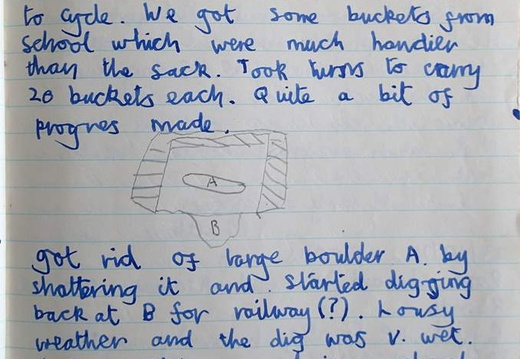 to cycle. We got some buckets from
school which were much handier
than the sack. Took turns to carry
20 buckets each. Quite a bit of
progres made.
A
B
got rid of large boulder A. by
shattering it and started digging
back at B for railway (?). Lousy
weather and the dig was v. wet.